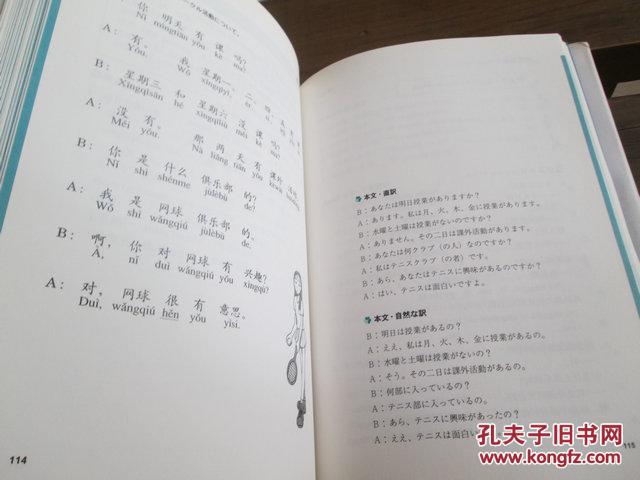 ークル活動について。
B： 你 明天 有 课 吗?
Nǐ míngtiān yǒu kè ma?
A： 有。 我 星期一、二、
Yǒu. Wǒ xīngqīyī, èr,
B： 星期三 和 星期六 没 课 吗?
Xīngqīsān hé xīngqīliù méi kè ma?
A： 没 有。 那 两 天 有 课外
Méi yǒu. Nà liǎng tiān yǒu kèwài
B： 你 是 什么 俱乐部 的?
Nǐ shì shénme jùlèbù de?
A： 我 是 网球 俱乐部 的。
Wǒ shì wǎngqiú jùlèbù de.
B： 啊， 你 对 网球 有 兴趣?
À, nǐ duì wǎngqiú yǒu xìngqù?
A： 对， 网球 很 有 意思。
Duì, wǎngqiú hěn yǒu yìsi.
114
本文・直訳
B：あなたは明日授業がありますか？
A：あります。私は月、火、木、金に授業があります。
B：水曜と土曜は授業がないのですか？
A：ありません。その二日は課外活動があります。
B：あなたは何クラブ（の人）なのですか？
A：私はテニスクラブ（の者）です。
B：あら、あなたはテニスに興味があるのですか？
A：はい、テニスは面白いですよ。
本文・自然な訳
B：明日は授業があるの？
A：ええ、私は月、火、木、金に授業があるの。
B：水曜と土曜は授業がないの？
A：そう。その二日は課外活動があるの。
B：何部に入っているの？
A：テニス部に入っているの。
B：あら、テニスに興味があったの？
A：ええ、テニスは面白い
115
孔夫子旧书网
www.kongfz.com